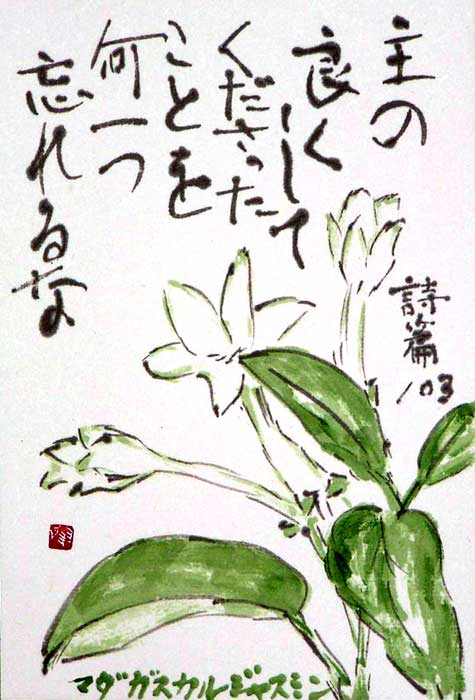 主の
良くして
くださった
ことを
何一つ
忘れるな
詩篇
103
マダガスカルジャスミン